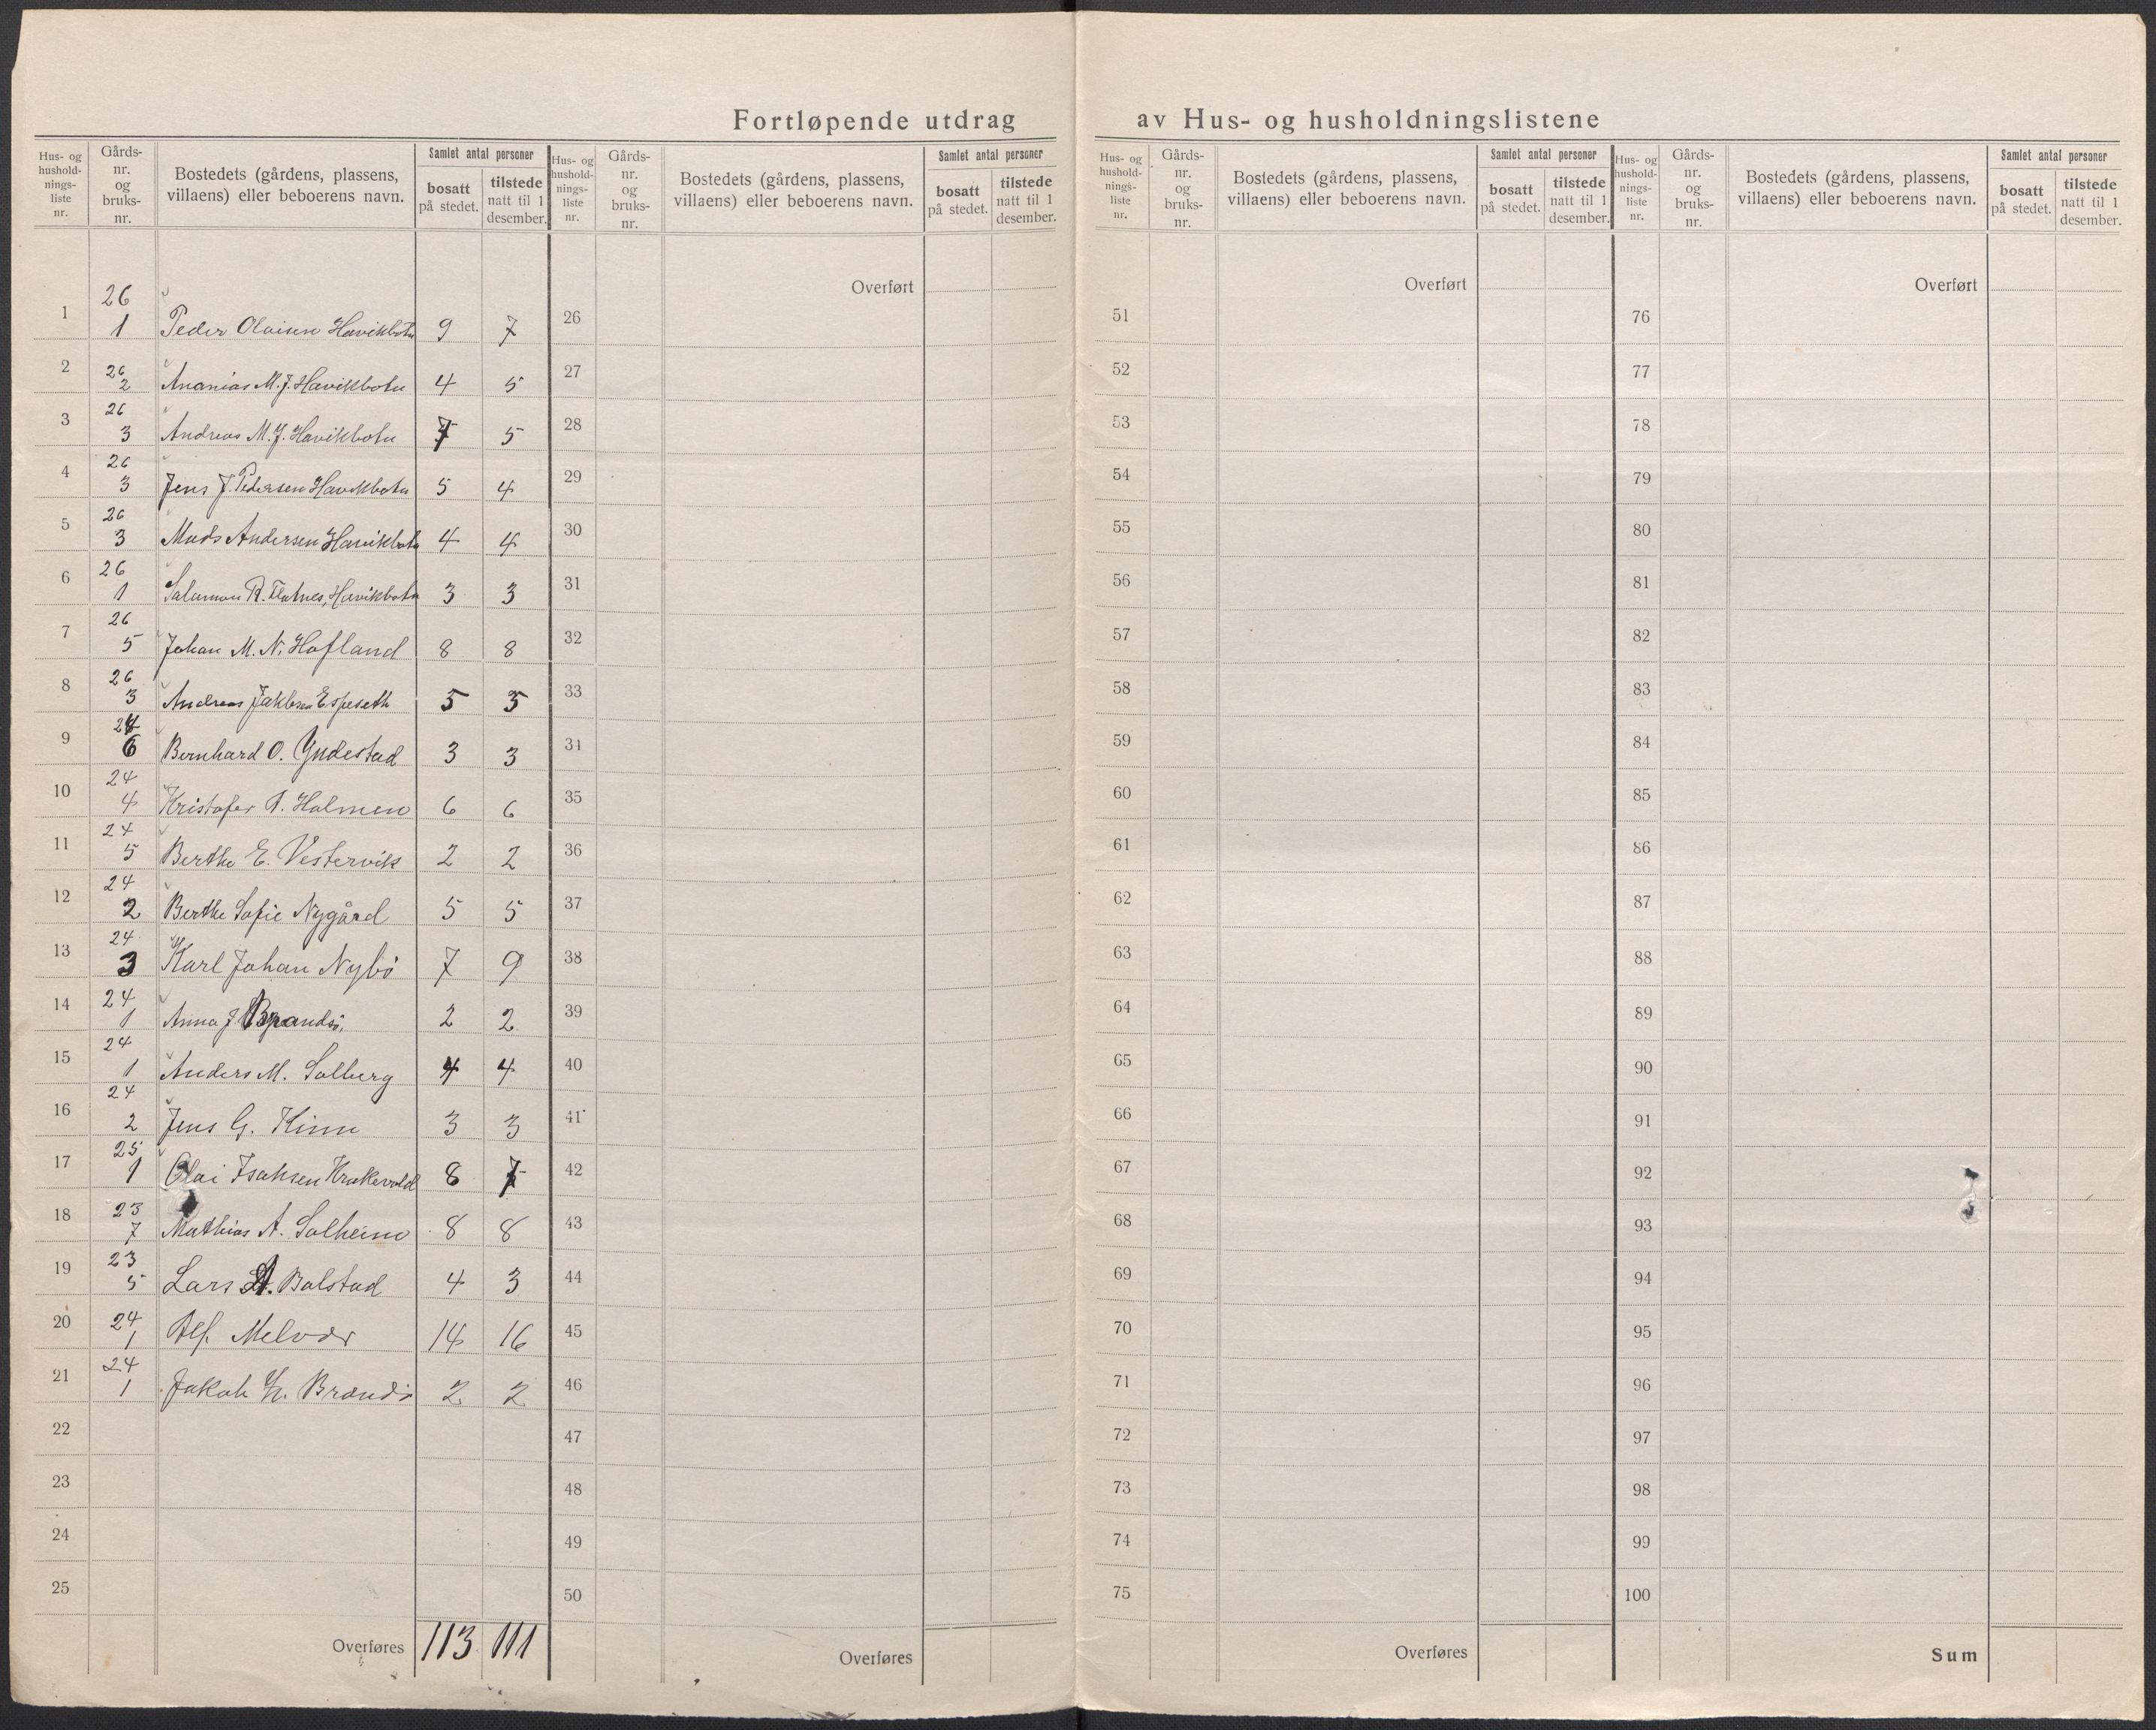 Fortløpende utdrag av Hus- og husholdningslistene
Hus- og hushold-nings-liste nr. | Gårds-nr. og bruks-nr. | Bostedets (gårdens, plassens, villaens) eller beboerens navn. | Samlet antal personer | bosatt på stedet. | tilstede natt til 1 desember.
1 | 26 1 | Peder Olaisen Havikbotn | 9 | 7
2 | 26 2 | Ananias M. J. Havikbotn | 4 | 5
3 | 26 3 | Andreas M. J. Havikbotn | 7 | 5
4 | 26 3 | Jens J. Pedersen Havikbotn | 5 | 4
5 | 26 3 | Mads Andersen Havikbotn | 4 | 4
6 | 26 1 | Salamon R. Flatnes, Havikbotn | 3 | 3
7 | 26 5 | Johan M. N. Hofland | 8 | 8
8 | 26 3 | Andreas Jakobsen Espeseth | 5 | 5
9 | 24 6 | Bernhard O. Yndestad | 3 | 3
10 | 24 4 | Kristofer P. Holmen | 6 | 6
11 | 24 5 | Berthe E. Vestervik | 2 | 2
12 | 24 2 | Berthe Sofie Nygård | 5 | 5
13 | 24 3 | Karl Johan Nybö | 7 | 9
14 | 24 1 | Anna J Brandsö, | 2 | 2
15 | 24 1 | Anders M. Solberg | 4 | 4
16 | 24 2 | Jens G. Kinn | 3 | 3
17 | 25 1 | Olai Isaksen Krokevold | 8 | 7
18 | 23 7 | Mathias A. Solheim | 8 | 8
19 | 23 5 | Lars A. Bolstad | 4 | 3
20 | 24 1 | Alf. Melvær | 14 | 16
21 | 24 1 | Jakob H. Brandsö | 2 | 2
22
23
24
25
Overføres | 113 | 111
Hus- og hushold-nings-liste nr. | Gårds-nr. og bruks-nr. | Bostedets (gårdens, plassens, villaens) eller beboerens navn. | Samlet antal personer | bosatt på stedet. | tilstede natt til 1 desember.
Overført
26
27
28
29
30
31
32
33
34
35
36
37
38
39
40
41
42
43
44
45
46
47
48
49
50
Overføres
Hus- og hushold-nings-liste nr. | Gårds-nr. og bruks-nr. | Bostedets (gårdens, plassens, villaens) eller beboerens navn. | Samlet antal personer | bosatt på stedet. | tilstede natt til 1 desember.
Overført
51
52
53
54
55
56
57
58
59
60
61
62
63
64
65
66
67
68
69
70
71
72
73
74
75
Overføres
Hus- og hushold-nings-liste nr. | Gårds-nr. og bruks-nr. | Bostedets (gårdens, plassens, villaens) eller beboerens navn. | Samlet antal personer | bosatt på stedet. | tilstede natt til 1 desember.
Overført
76
77
78
79
80
81
82
83
84
85
86
87
88
89
90
91
92
93
94
95
96
97
98
99
100
Sum